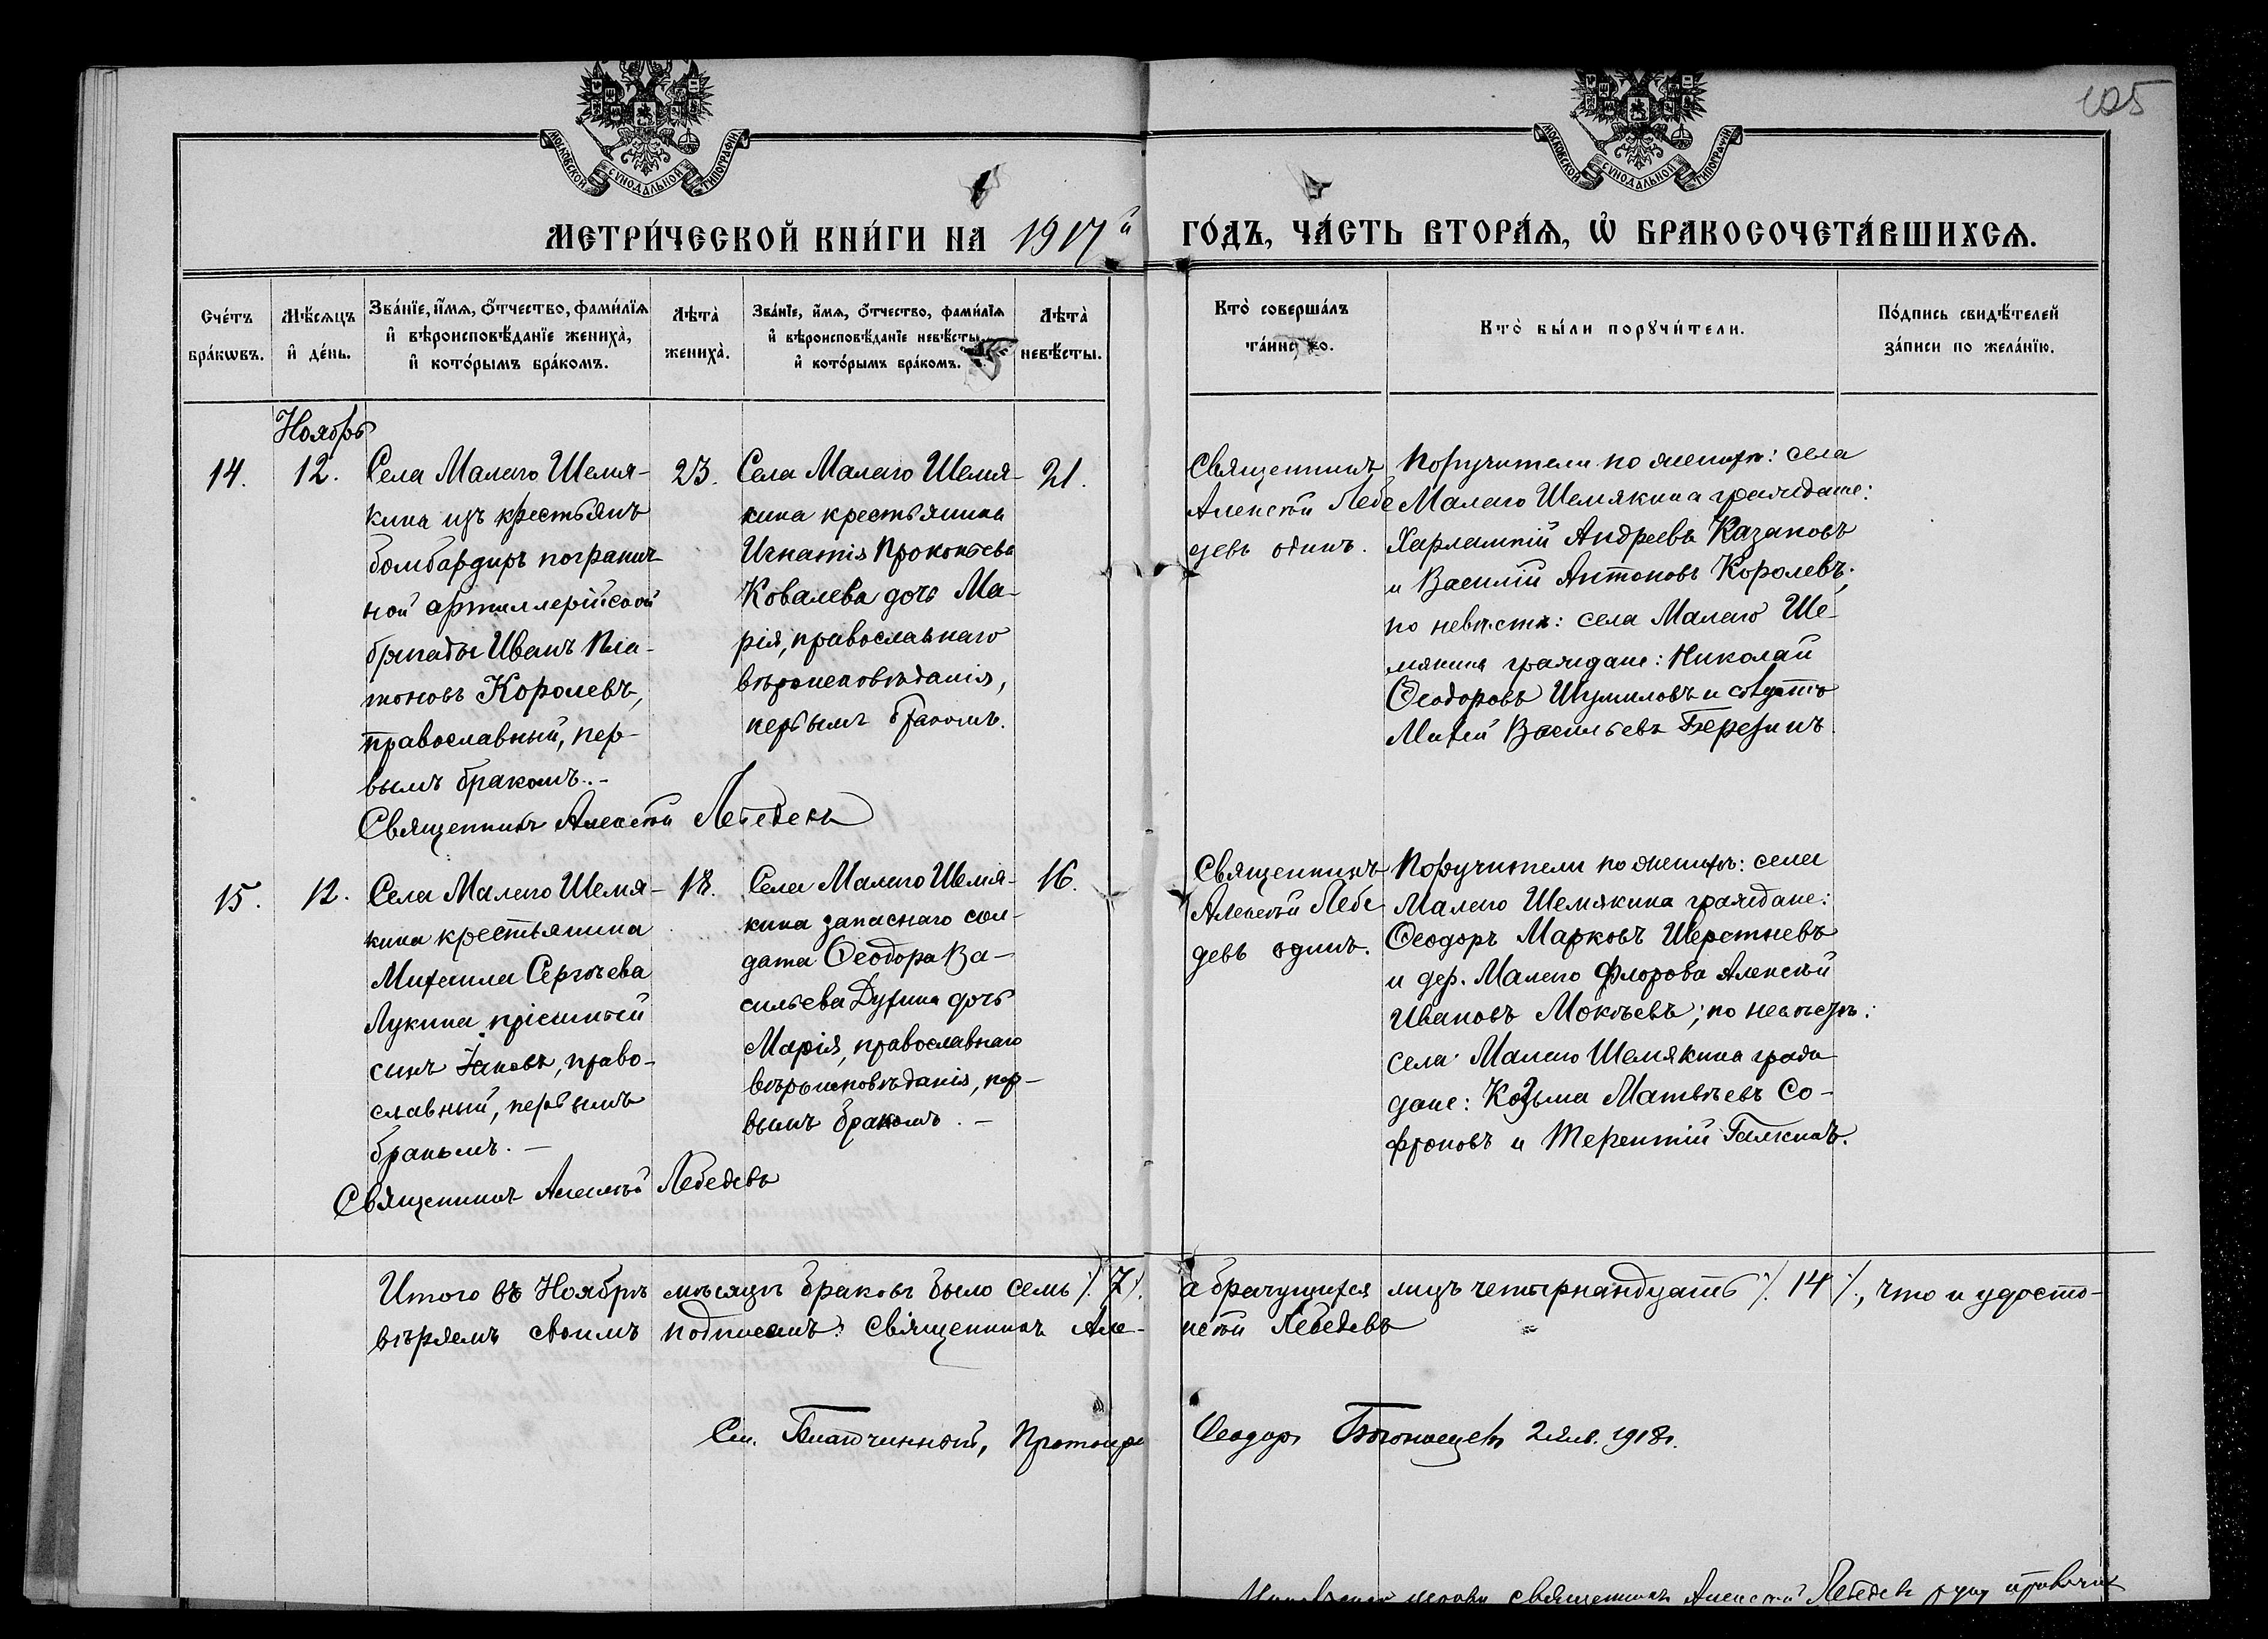 105
МОСКОВСКОЙ СѴНОДАЛЬНОЙ ТИПОГРАФІИ
МОСКОВСКОЙ СѴНОДАЛЬНОЙ ТИПОГРАФІИ
МЕТРИ́ЧЕСКОЙ КНИ́ГИ НА 1917й ГО́ДЪ, ЧА́СТЬ ВТОРА́Ѧ, Ѡ҆ БРАКОСОЧЕТА́ВШИХСѦ.
Сче́тъ
бра́кѡвъ.
Мѣ́сяцъ
и҆ де́нь.
Зва́нїе, и҆́мѧ, ѻ҆́тчество, фами́лїѧ
и҆ вѣроисповѣ́данїе жениха̀,
и҆ кото́рымъ бра́комъ.
Лѣта̀
жениха̀.
Зва́нїе, и҆́мѧ, ѻ҆́тчество, фами́лїѧ
и҆ вѣроисповѣ́данїе невѣ́сты,
и҆ кото́рымъ бра́комъ.
Лѣта̀
невѣ́сты.
Кто̀ соверша́лъ
та́инство.
Кто̀ бы́ли порꙋчи́тели.
По́дпись свидѣ́телей
за́писи по жела́нїю.
Ноябрь
14.
12.
Села Малаго Шемя-
кина изъ крестьянъ
бомбардиръ погранич-
ной артиллерійской
бригады Иванъ Пла-
тоновъ Королевъ,
православный, пер-
вымъ бракомъ.-
23.
Села Малаго Шемя-
кина крестьянина
Игнатія Прокопьева
Ковалева дочь Ма-
рія, православнаго
вѣроисповѣданія,
первымъ бракомъ.
21.
Священникъ
Алексѣй Лебе
девъ одинъ.
Поручители по женихѣ: села
Малаго Шемякина граждане:
Харлампій Андреевъ Казаковъ
и Василій Антоновъ Королевъ;
по невѣстѣ: села Малаго Ше-
мякина граждане: Николай
Ѳеодоровъ Шумиловъ и
Михей Васильевъ Березинъ
Священникъ Алексѣй Лебедевъ
15.
12.
Села Малаго Шемя-
кина крестьянина
Михаила Сергѣева
Лукина пріемный
сынъ Іаковъ, право-
славный, первымъ
бракомъ.-
18.
Села Малаго Шемя-
кина запаснаго сол-
дата Ѳеодора Ва-
сильева Духина дочь
Марія, православнаго
вѣроисповѣданія, пер-
вымъ бракомъ.-
16.
Священникъ
Алексѣй Лебе
девъ одинъ.
Поручители по женихѣ: села
Малаго Шемякина граждане:
Ѳеодоръ Марковъ Шерстневъ
и дер. Малаго Флорова Алексѣй
Ивановъ Мокѣевъ; по невѣстѣ:
села Малаго Шемякина граж-
дане: Козьма Матвѣевъ Со-
фроновъ и Терентій Галкинъ.
Священникъ Алексѣй Лебедевъ
Итого въ Ноябрѣ мѣсяцѣ браковъ было семь /. 7 /. а брачущихся лицъ четырнандцать /. 14 /., что и удосто-
вѣряемъ своимъ подписомъ: Священникъ Алексѣй Лебедевъ
См. Благочинной, Протоіерей Ѳеодоръ 2 янв. 1918 г.
священникъ Алексѣй Лебедевъ руку приложилъ